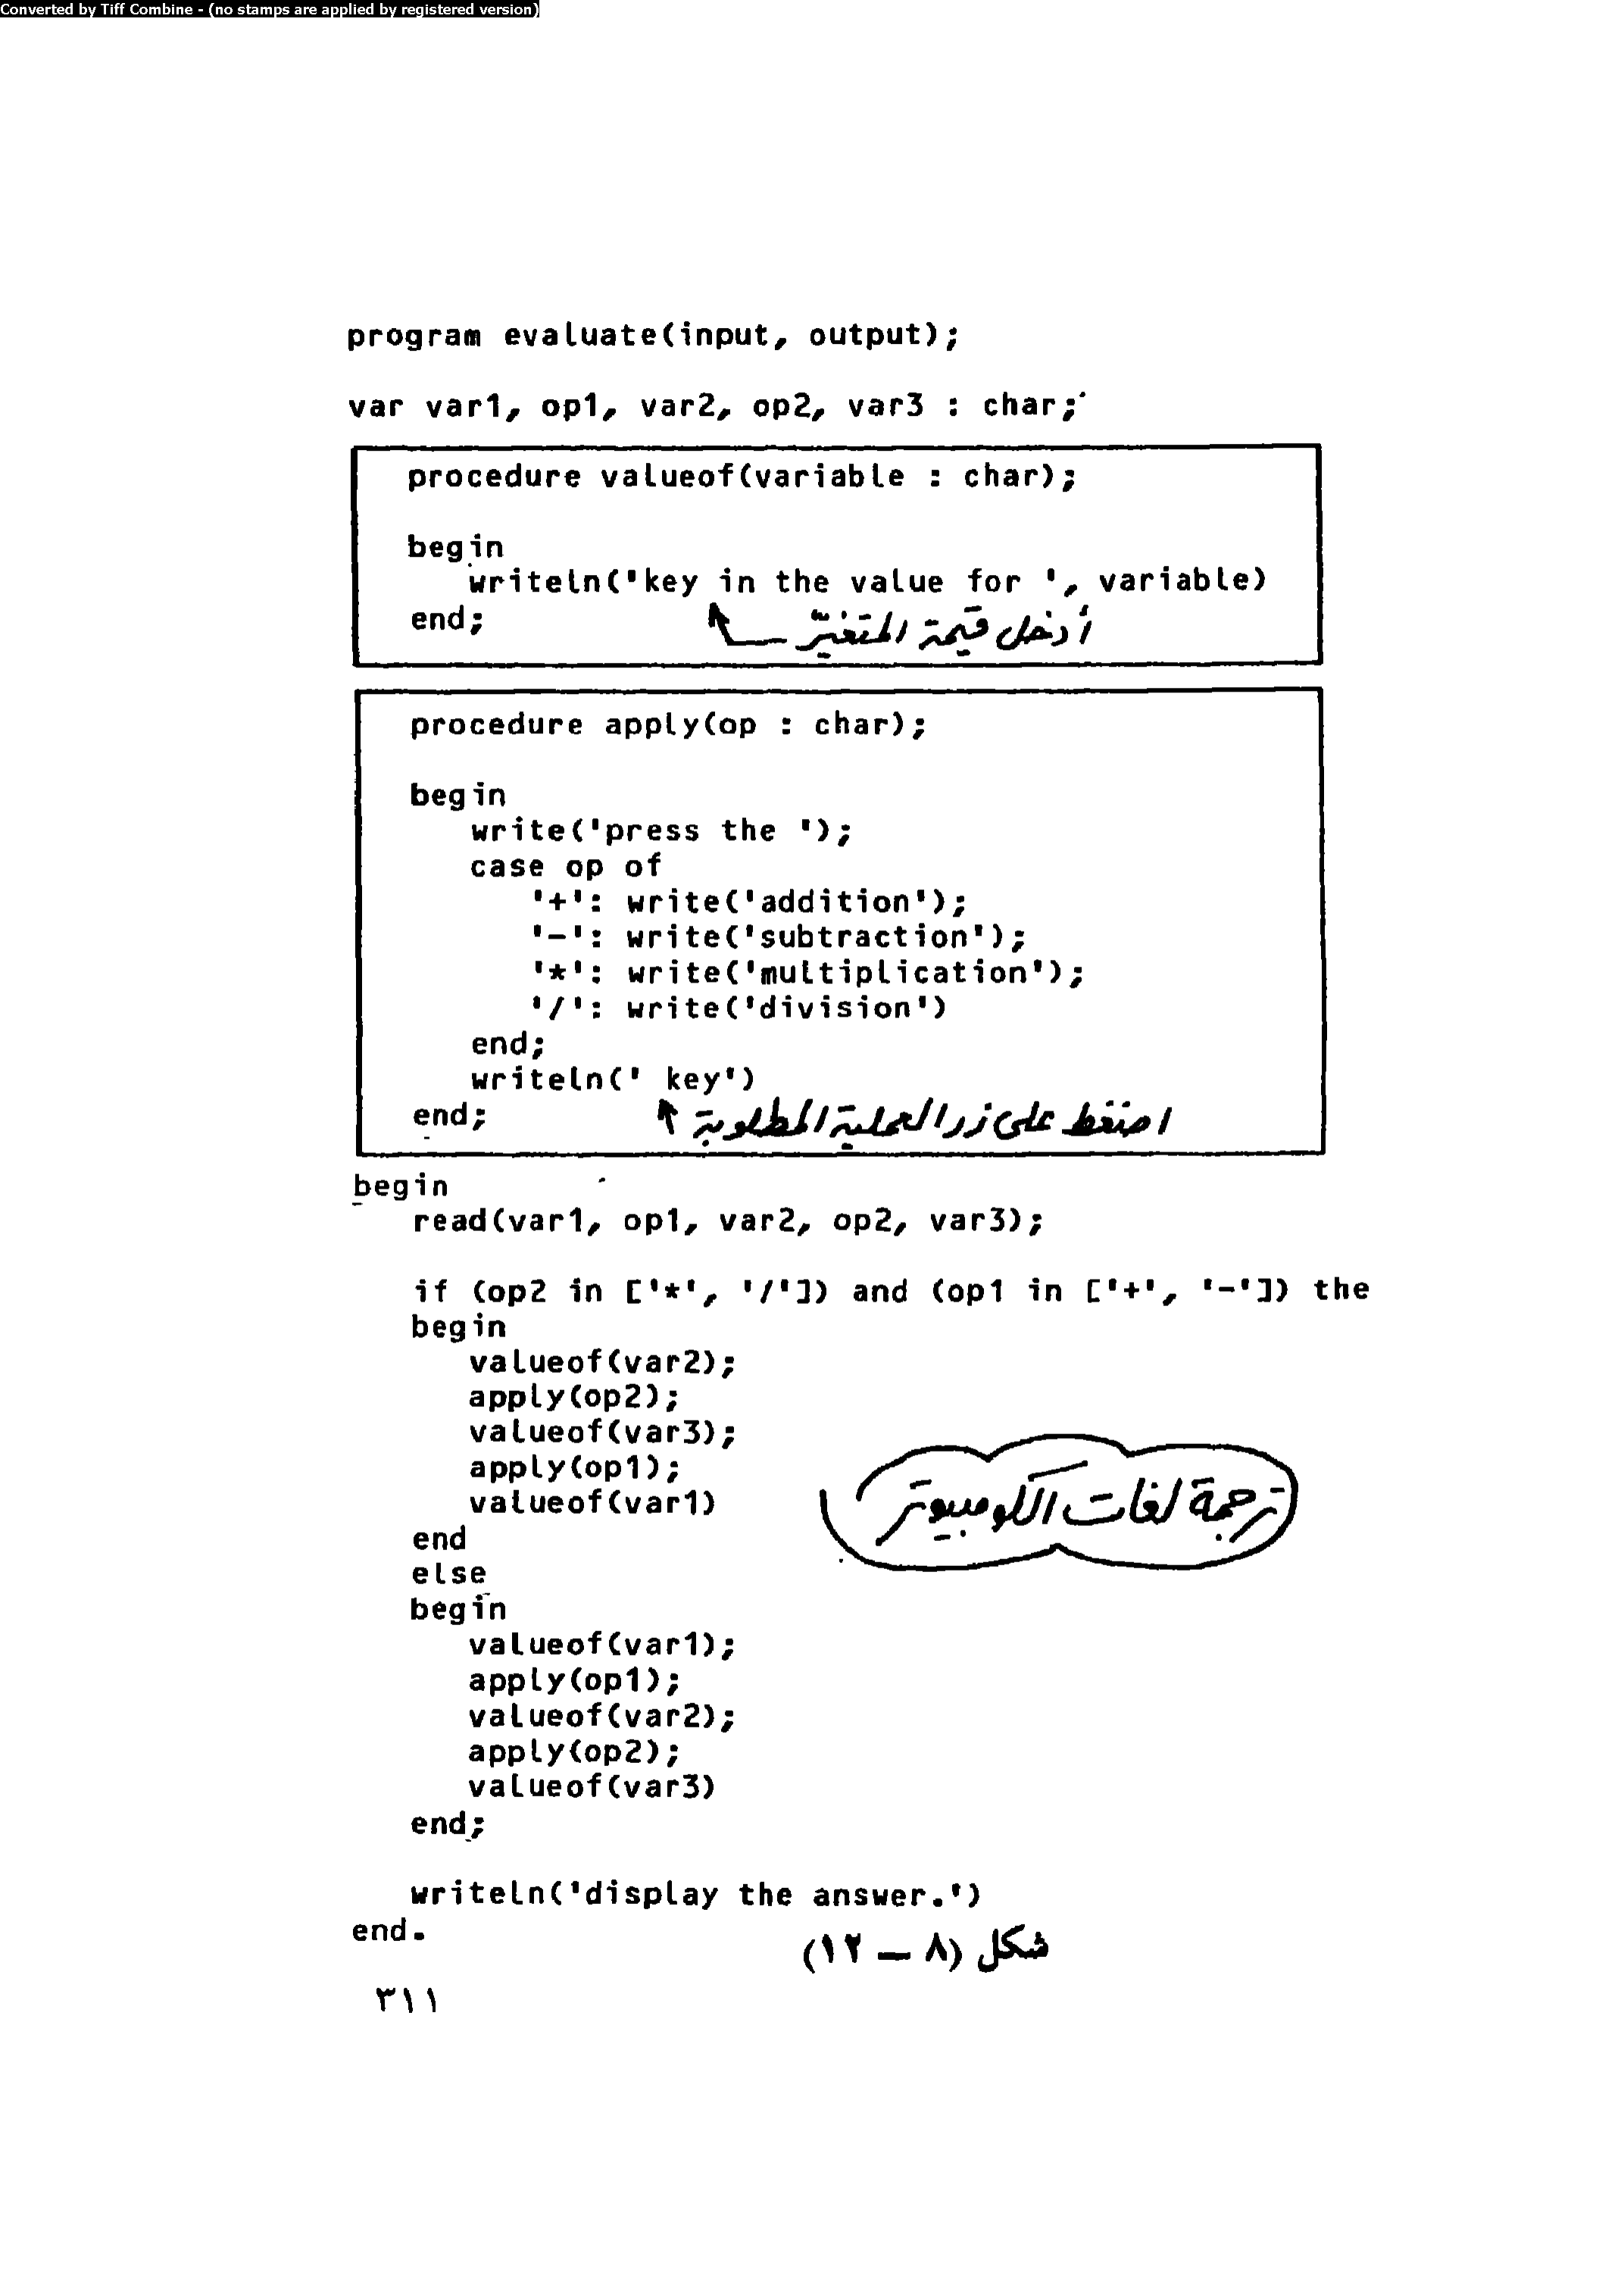 Converted by Tiff Combine - (no stamps are applied by registered version)
program evaluate(input, output);
var var1, op1, var2, op2, var3 : char;
procedure valueof(variable : char);
begin
writeln('key in the value for ', variable)
end;
أدخل قيمة المتغيّر
procedure apply(op : char);
begin
write('press the ');
case op of
'+': write('addition');
'-': write('subtraction');
'*': write('multiplication');
'/': write('division')
end;
writeln(' key')
end;
اضغط على زر العملية المطلوبة
begin
read(var1, op1, var2, op2, var3);
if (op2 in ['*', '/']) and (op1 in ['+', '-']) the
begin
valueof(var2);
apply(op2);
valueof(var3);
apply(op1);
valueof(var1)
end
ترجمة لغات الكومبيوتر
else
begin
valueof(var1);
apply(op1);
valueof(var2);
apply(op2);
valueof(var3)
end;
writeln('display the answer.')
end.
شكل (٨ – ١٢)
٣١١